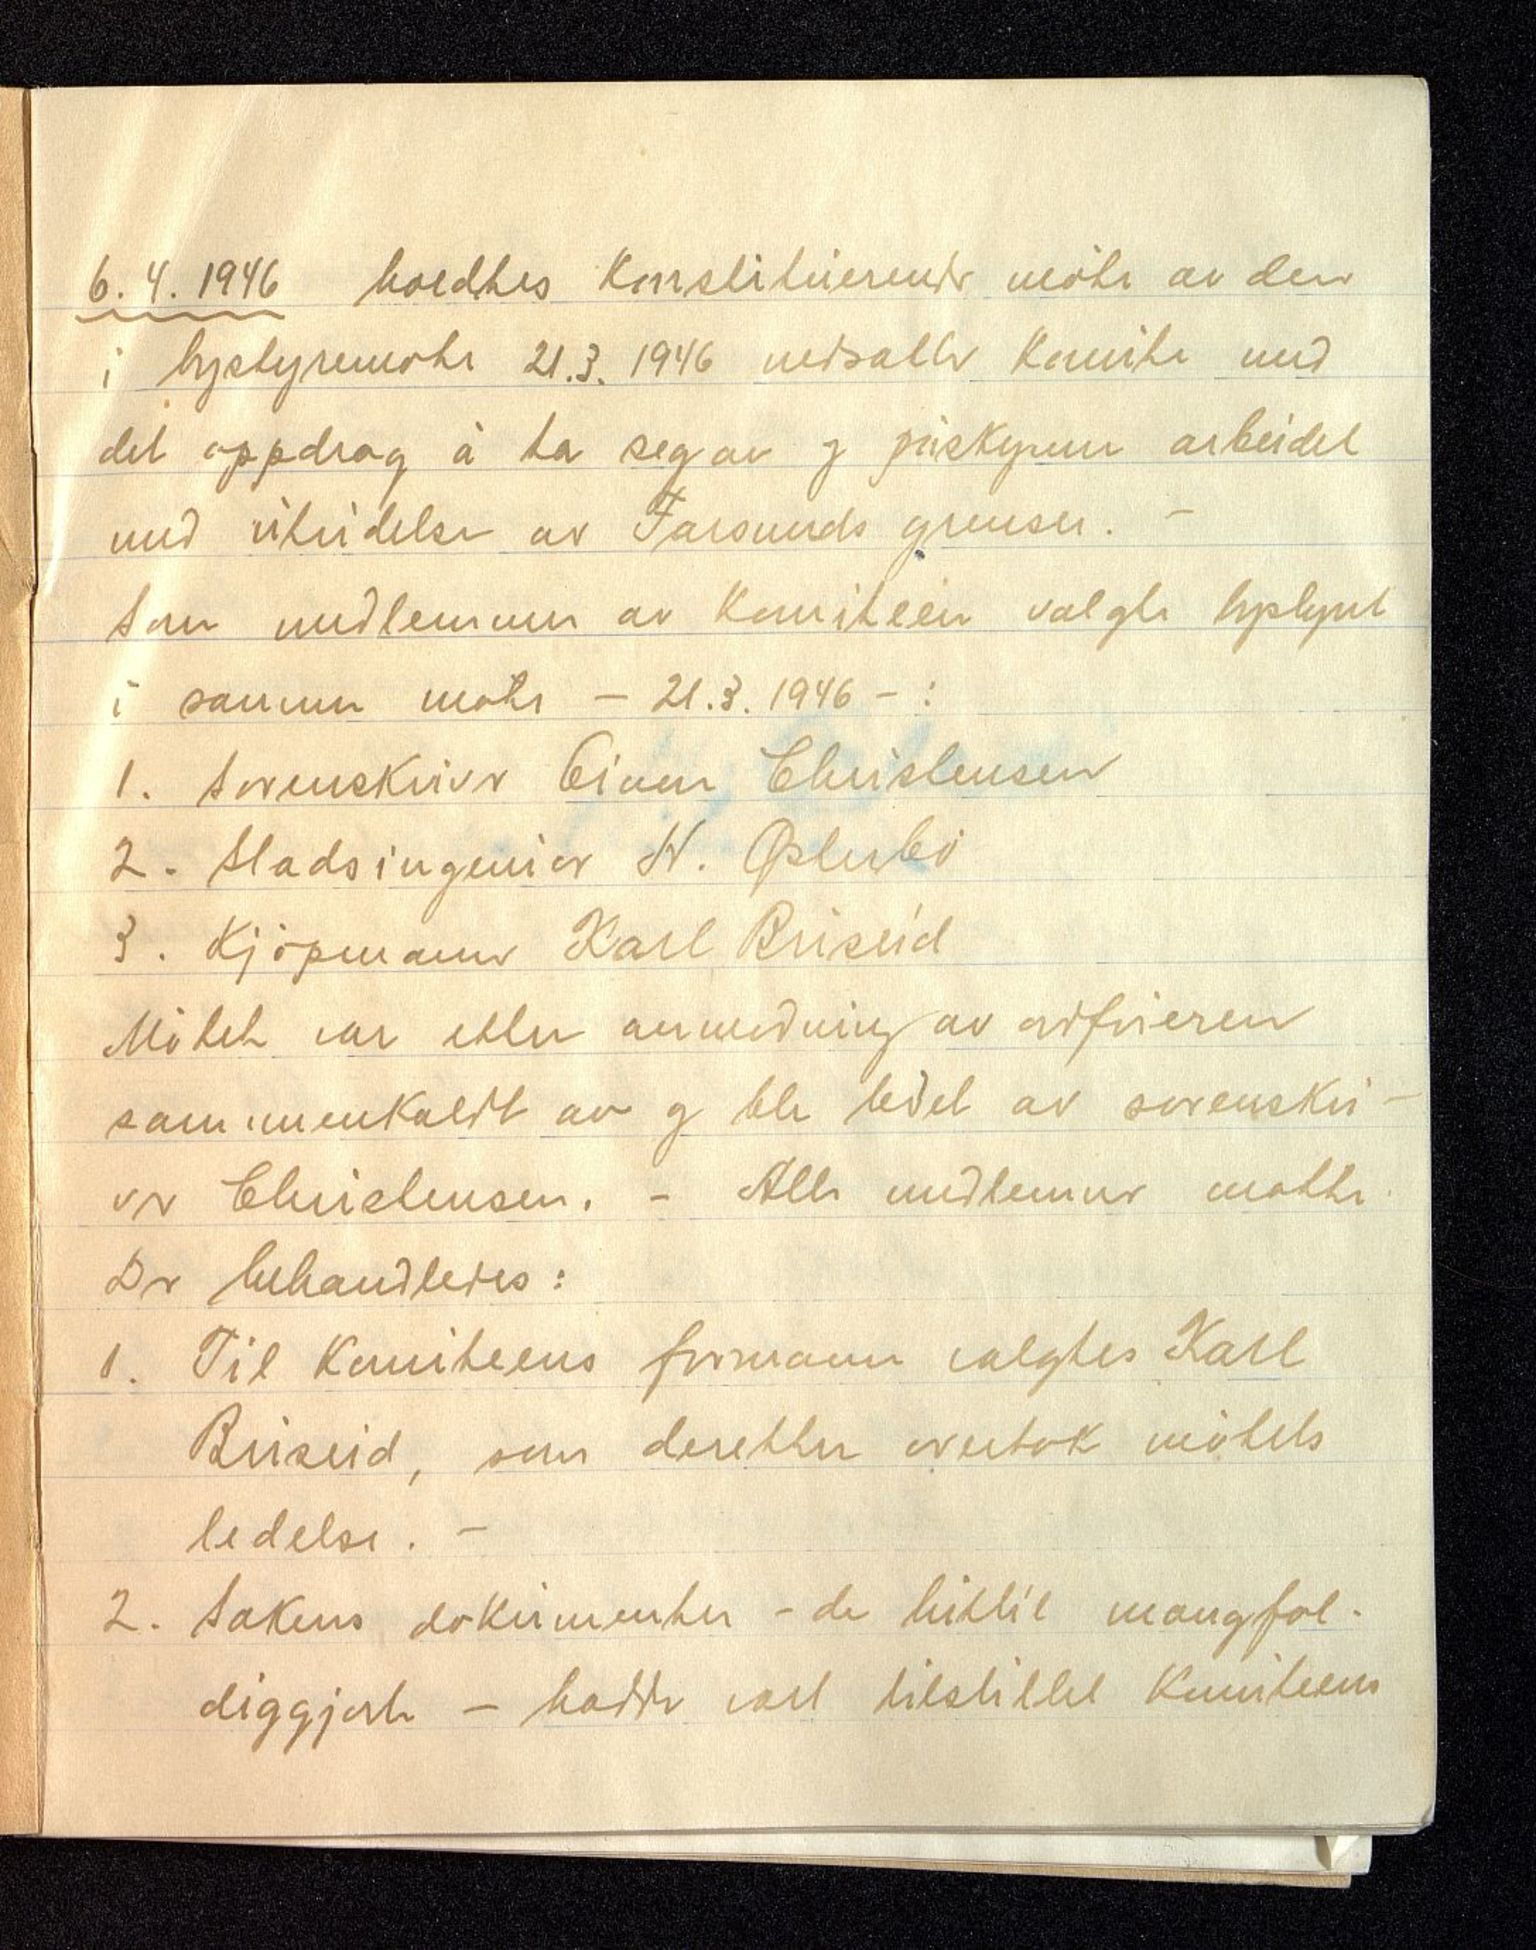 6.4.1946 holdtes konstituerende møte av den
i bystyremøte 21.3.1946 nedsatte komite med
det oppdrag å ta seg av og påskynne arbeidet
med utvidelse av Farsunds grenser. -
Som medlemmer av komiteen valgte bystyret
i samme møte - 21.3.1946 - :
1. Sorenskriver Einar Christensen
2. Stadsingeniør N. Østerbö
3. Kjöpmann Karl Briseid
Mötet var etter anmodning av ordföreren
sammenkaldt av og ble ledet av sorenskri-
ver Christensen. - Alle medlemmer møtte.
Der behandledes:
1. Til komiteens formann valgtes Karl
Briseid, som deretter overtok mötets
ledelse. -
2. Sakens dokumenter - de hittil mangfol-
diggjorte - hadde vært tilstillet komiteens